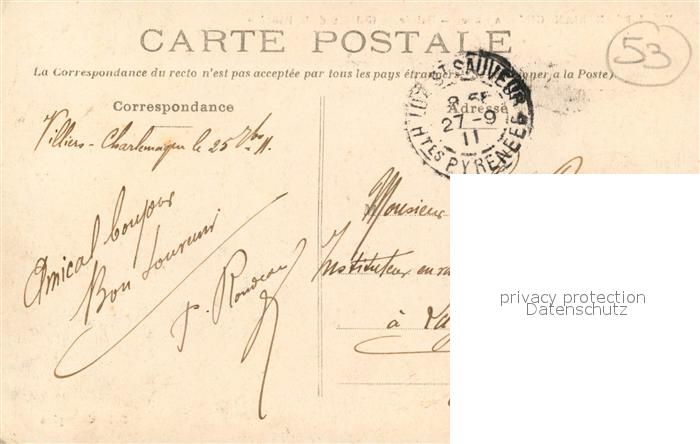 CARTE POSTALE
53
La Correspondance du recto n'est pas acceptée par tous les pays étrangers (Se renseigner à la Poste)
Correspondance
Adresse
LUZ ST SAUVEUR
27-9
11
HTES PYRENEES
Villiers-Charlemagne le 25 7bre 11.
Amical bonjour
Bon Souvenir
P. Rondeau
Monsieur
Instituteur en
à
privacy protection
Datenschutz